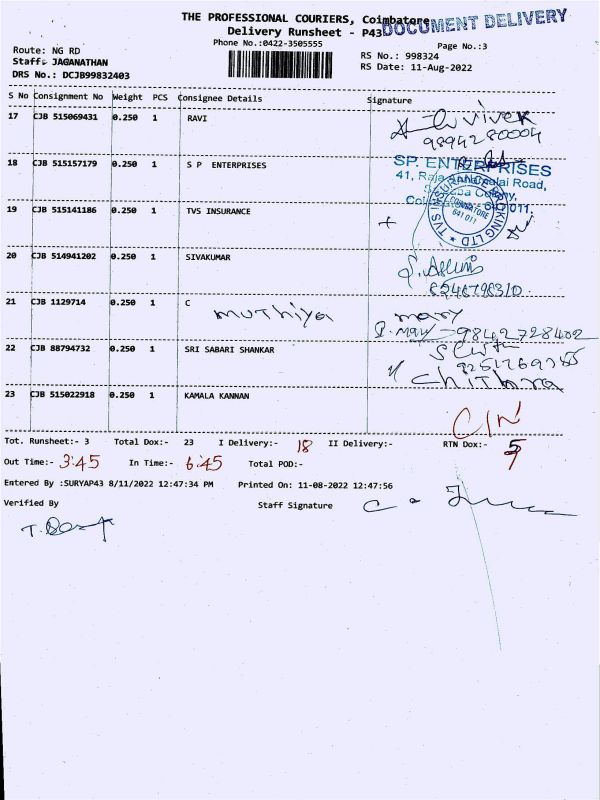 THE PROFESSIONAL COURIERS, Coimbatore
DOCUMENT DELIVERY
Delivery Runsheet - P43
Phone No.:0422-3505555
Page No.:3
Route: NG RD
RS No.: 998324
Staff: JAGANATHAN
RS Date: 11-Aug-2022
DRS No.: DCJB99832403
S No Consignment No Weight PCS Consignee Details Signature
17 CJB 515069431 0.250 1 RAVI
vivek
9894280004
18 CJB 515157179 0.250 1 S P ENTERPRISES
SP. ENTERPRISES
41, Raja Road,
641 011.
19 CJB 515141186 0.250 1 TVS INSURANCE
TVS INSURANCE BROKING LTD
COIMBATORE
641 011
20 CJB 514941202 0.250 1 SIVAKUMAR
21 CJB 1129714 0.250 1 C muthiya
mary
9842728402
22 CJB 88794732 0.250 1 SRI SABARI SHANKAR
Chithra
23 CJB 515022918 0.250 1 KAMALA KANNAN
Tot. Runsheet:- 3 Total Dox:- 23 I Delivery:- 18 II Delivery:- RTN Dox:- 5
Out Time:- 3:45 In Time:- 6:45 Total POD:-
Entered By :SURYAP43 8/11/2022 12:47:34 PM Printed On: 11-08-2022 12:47:56
Verified By Staff Signature